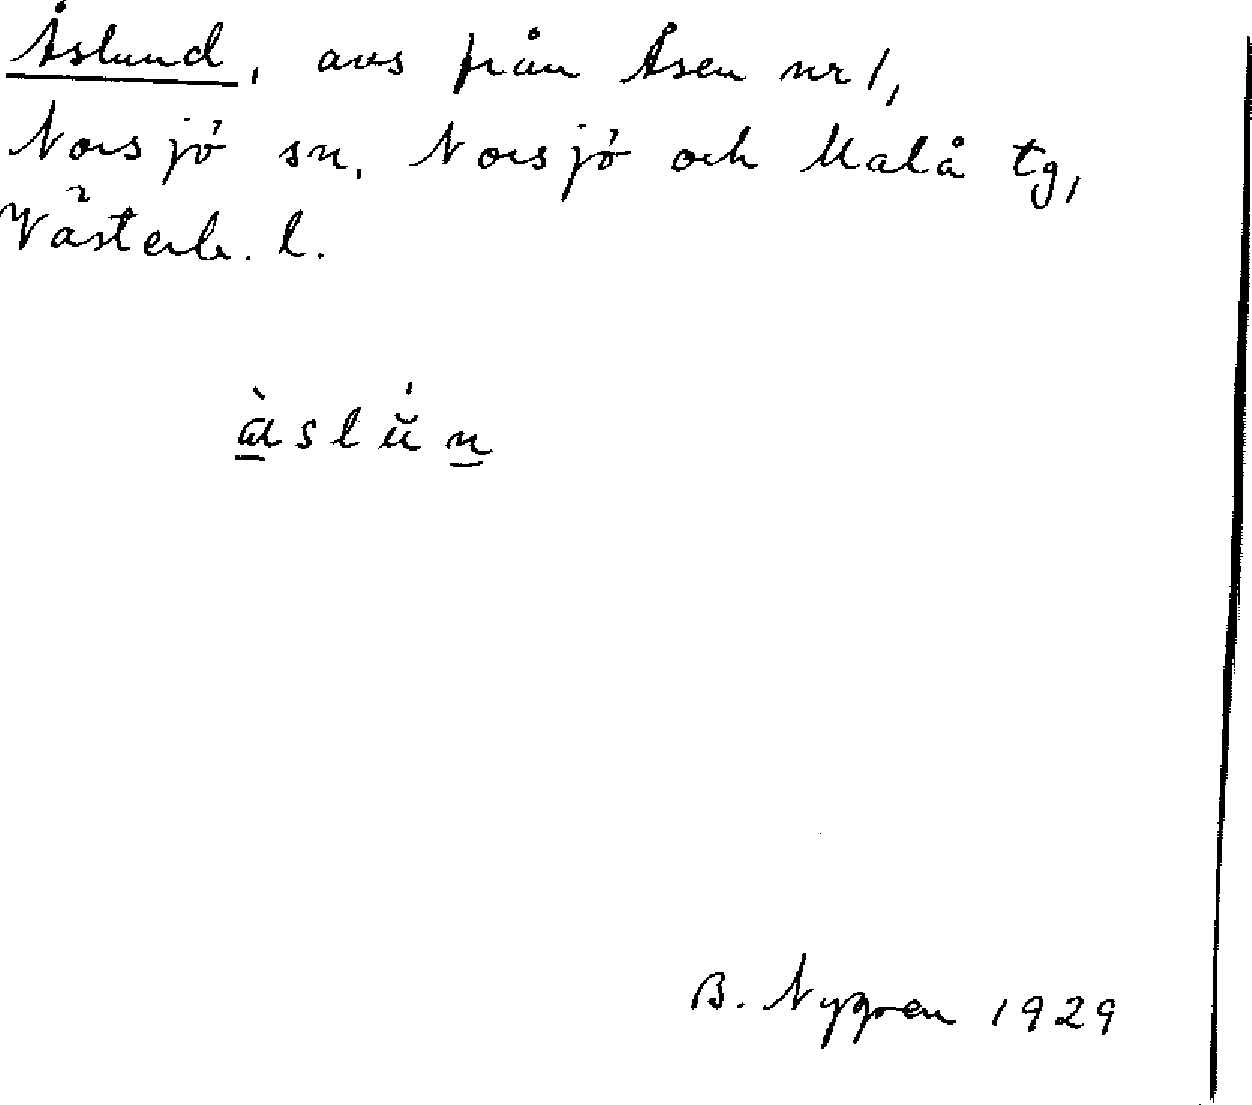 Åslund, avs från Åsen nr 1,
Norsjö sn. Norsjö och Malå tg,
Västerb. l.
B. Nygren 1929